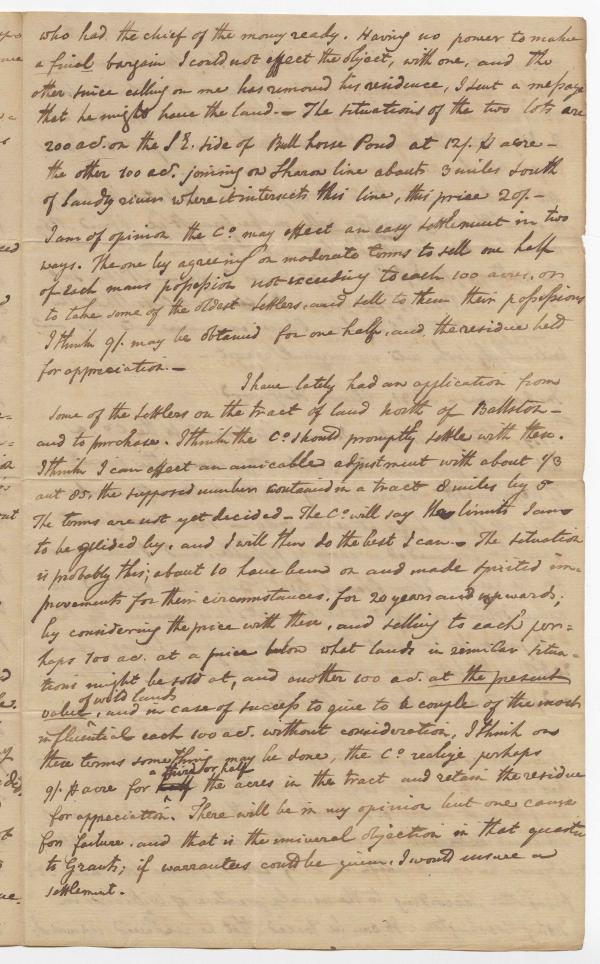 who had the chief of the money ready. Having no power to make
a final bargain I could not effect the object, with one, and the
other since calling on me has removed his residence, I sent a message
that he might have the land. – The situations of the two lots are
200 ac. on the S.E. side of Bull horse Pond at 12/. acre –
the other 100 ac. joining on Sharon line about 3 miles South
of Sandy river where it intersects this line, this price 20/. –
I am of opinion the Co may effect an easy settlement in two
ways. The one by agreeing on moderate terms to sell one half
of each mans possession not exceeding to each 100 acres, or
to take some of the oldest settlers, and sell to them their possessions
I think 9/. may be obtained for one half, and the residue held
for appreciation. –
I have lately had an application from
some of the settlers on the tract of land north of Ballston –
and to purchase. I think the Co should promptly settle with them.
I think I can effect an amicable adjustment with about 1/3
out 85. the supposed number contained in a tract 8 miles by 5
The terms are not yet decided – The Co will say the limits I am
to be guided by, and I will then do the best I can. – The situation
is probably this; about 10 have been on and made spirited im=
provements for their circumstances, for 20 years and upwards,
by considering the price with these, and selling to each per=
haps 100 ac. at a price below what lands in similar situa=
tions might be sold at, and another 100 ac. at the present
of wild lands
value, and in case of success to give to a couple of the most
influential each 100 ac. without consideration, I think on
these terms something may be done, the Co realize perhaps
a third or half
9/. acre for the acres in the tract and retain the residue
for appreciation. There will be in my opinion but one cause
for failure, and that is the universal objection in that quarter
to Grants; if warrantees could be given, I would insure a
settlement.